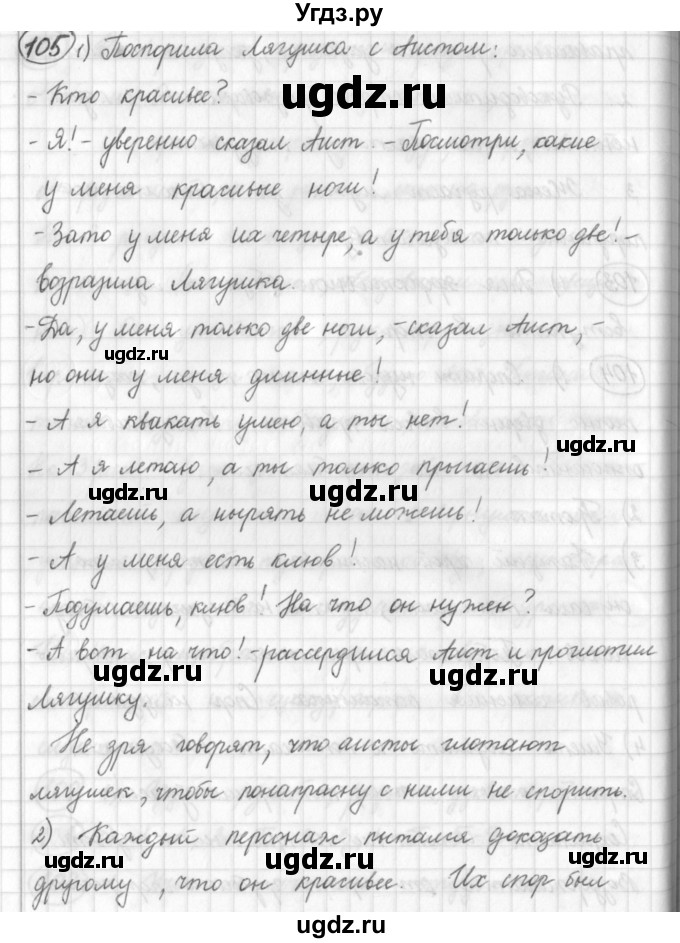 Угдз.ру
105 1) Поспорила Лягушка с Аистом:
- Кто красивее?
ugdz.ru
- Я! - уверенно сказал Аист. - Посмотри, какие
у меня красивые ноги!
- Зато у меня их четыре, а у тебя только две! -
возразила Лягушка.
- Да, у меня только две ноги, - сказал Аист, -
ugdz.ru
но они у меня длинные!
- А я квакать умею, а ты нет!
ugdz.ru
- А я летаю, а ты только прыгаешь!
ugdz.ru
ugdz.ru
- Летаешь, а нырять не можешь!
- А у меня есть клюв!
- Подумаешь, клюв! На что он нужен?
- А вот на что! - рассердился Аист и проглотил
ugdz.ru
ugdz.ru
Лягушку.
Не зря говорят, что аисты глотают
лягушек, чтобы понапрасну с ними не спорить.
2) Каждый персонаж пытался доказать
ugdz.ru
ugdz.ru
ugdz.ru
другому, что он красивее. Их спор был
ugdz.ru